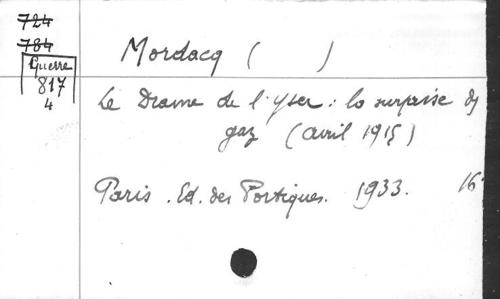 724
784
Guerre
817
4
Mordacq ( )
Le Drame de l'Yser : la surprise des
gaz (avril 1915)
Paris. Ed. des Portiques. 1933. 16°